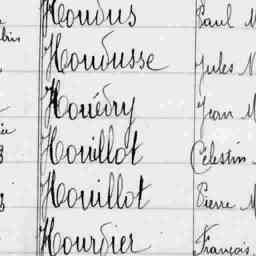 Houdus Paul
Houdusse Jules
Houédry Jean
Houillot Célestin
Houillot Pierre
Hourdier François